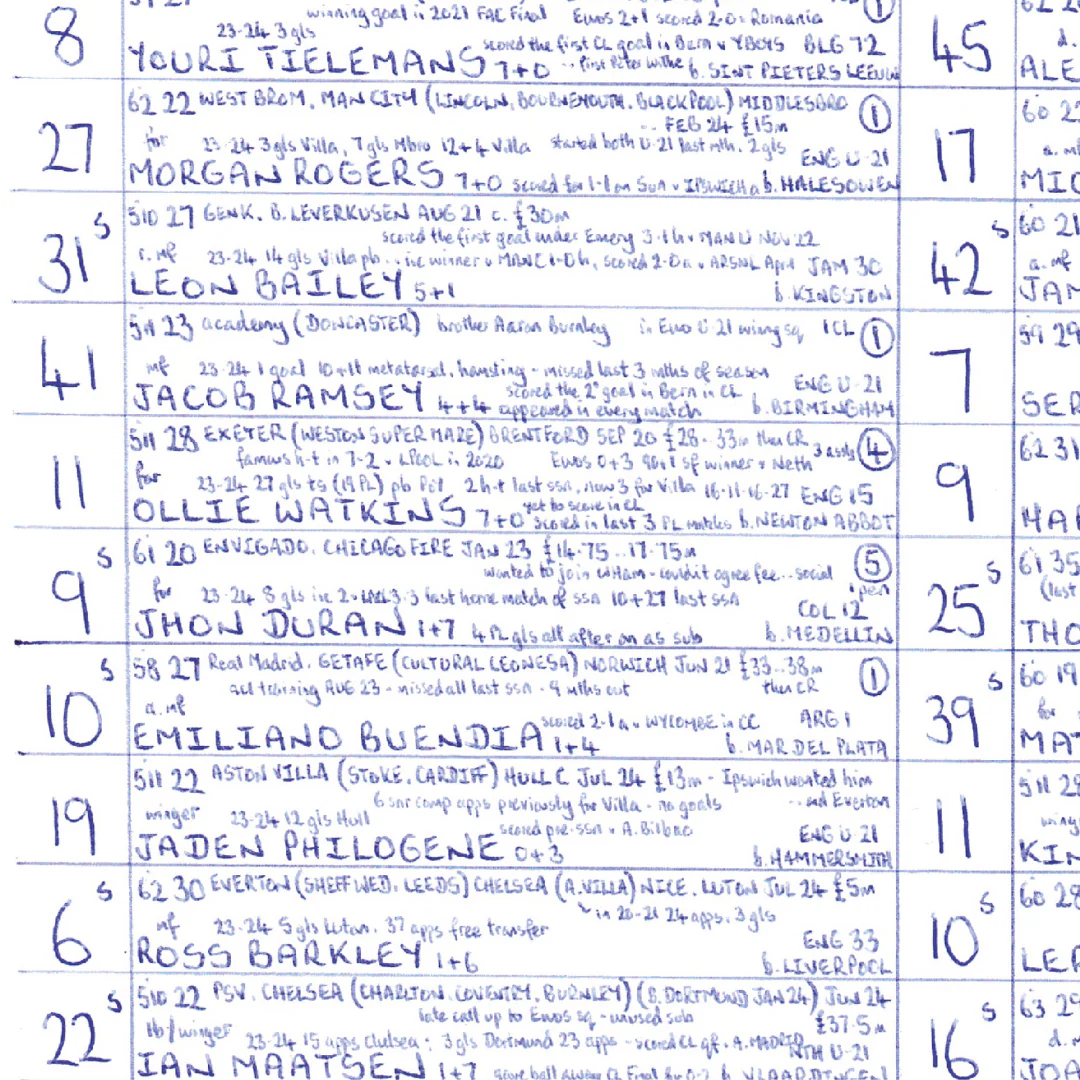 8
winning goal in 2021 FAC Final Euros 2+1 scored 2-0 v Romania 1
23-24 3 gls
scored the first CL goal in Bern v YBoys BLG 72
YOURI TIELEMANS 7+0 first Peter Withe b. SINT PIETERS LEEUW
27
62 22 WEST BROM. MAN CITY (LINCOLN, BOURNEMOUTH, BLACKPOOL) MIDDLESBRO 1
.. FEB 24 £15m
for 23-24 3 gls Villa, 7 gls Mbro 12+4 Villa started both U-21 last mth. 2 gls ENG U-21
MORGAN ROGERS 7+0 scored for 1-1 on Sun v IPSWICH a b. HALESOWEN
31 s
510 27 GENK. B. LEVERKUSEN AUG 21 c. £30m
scored the first goal under Emery 3-1 h v MAN U NOV 22
r. mf 23-24 14 gls Villa pb .. inc winner v MANC 1-0 h, scored 2-0 a v ARSNL April JAM 30
LEON BAILEY 5+1 b. KINGSTON
41
511 23 academy (DONCASTER) brother Aaron Burnley in Euro U-21 wining sq 1CL 1
mf 23-24 1 goal 10+11 metatarsal, hamstring - missed last 3 mths of season ENG U-21
scored the 2nd goal in Bern in CL
JACOB RAMSEY 4+4 appeared in every match b. BIRMINGHAM
11
511 28 EXETER (WESTON SUPER MARE) BRENTFORD SEP 20 £28-33m then CR 3 assts 4
famous h-t in 7-2 v LPOOL in 2020 Euros 0+3 90+1 sf winner v Neth
for 23-24 27 gls ts (19 PL) pb 2 h-t last ssn, now 3 for Villa 16-11-16-27 ENG 15
yet to score in CL
OLLIE WATKINS 7+0 scored in last 3 PL matches b. NEWTON ABBOT
9 s
61 20 ENVIGADO. CHICAGO FIRE JAN 23 £14.75..17.75m 5
wanted to join WHam - couldn't agree fee... social 1 pen
for 23-24 8 gls inc 2 v 3-3 last home match of ssn 10+27 last ssn COL 12
JHON DURAN 1+7 4 PL gls all after on as sub b. MEDELLIN
10 s
58 27 Real Madrid. GETAFE (CULTURAL LEONESA) NORWICH JUN 21 £33..38m 1
acl training AUG 23 - missed all last ssn - 9 mths out then CR
a. mf
scored 2-1 a v WYCOMBE in CC ARG 1
EMILIANO BUENDIA 1+4 b. MAR DEL PLATA
19
511 22 ASTON VILLA (STOKE. CARDIFF) HULL C JUL 24 £13m - Ipswich wanted him
6 snr comp apps previously for Villa - no goals ... and Everton
winger 23-24 12 gls Hull
scored pre-ssn v A. Bilbao ENG U-21
JADEN PHILOGENE 0+3 b. HAMMERSMITH
6 s
62 30 EVERTON (SHEFF WED. LEEDS) CHELSEA (A. VILLA) NICE. LUTON JUL 24 £5m
in 20-21 24 apps. 3 gls
mf 23-24 5 gls Luton. 37 apps free transfer
ENG 33
ROSS BARKLEY 1+6 b. LIVERPOOL
22 s
510 22 PSV. CHELSEA (CHARLTON. COVENTRY. BURNLEY) (B. DORTMUND JAN 24) JUN 24
late call up to Euros sq - unused sub £37.5m
lb/winger 23-24 15 apps Chelsea; 3 gls Dortmund 23 apps - scored CL qf v A. MADRID NTH U-21
IAN MAATSEN 1+7 CL Final b. VLAARDINGEN
45
d.
ALE
17
60 22
a. mf
MIC
42 s
60 21
a. mf
JAM
7
59 29
SER
9
62 31
HAR
25 s
61 35
(last
THO
39 s
60 19
for
MAT
11
511 28
wing
KIN
10 s
60 28
LER
16 s
63 29
d. m
JOA